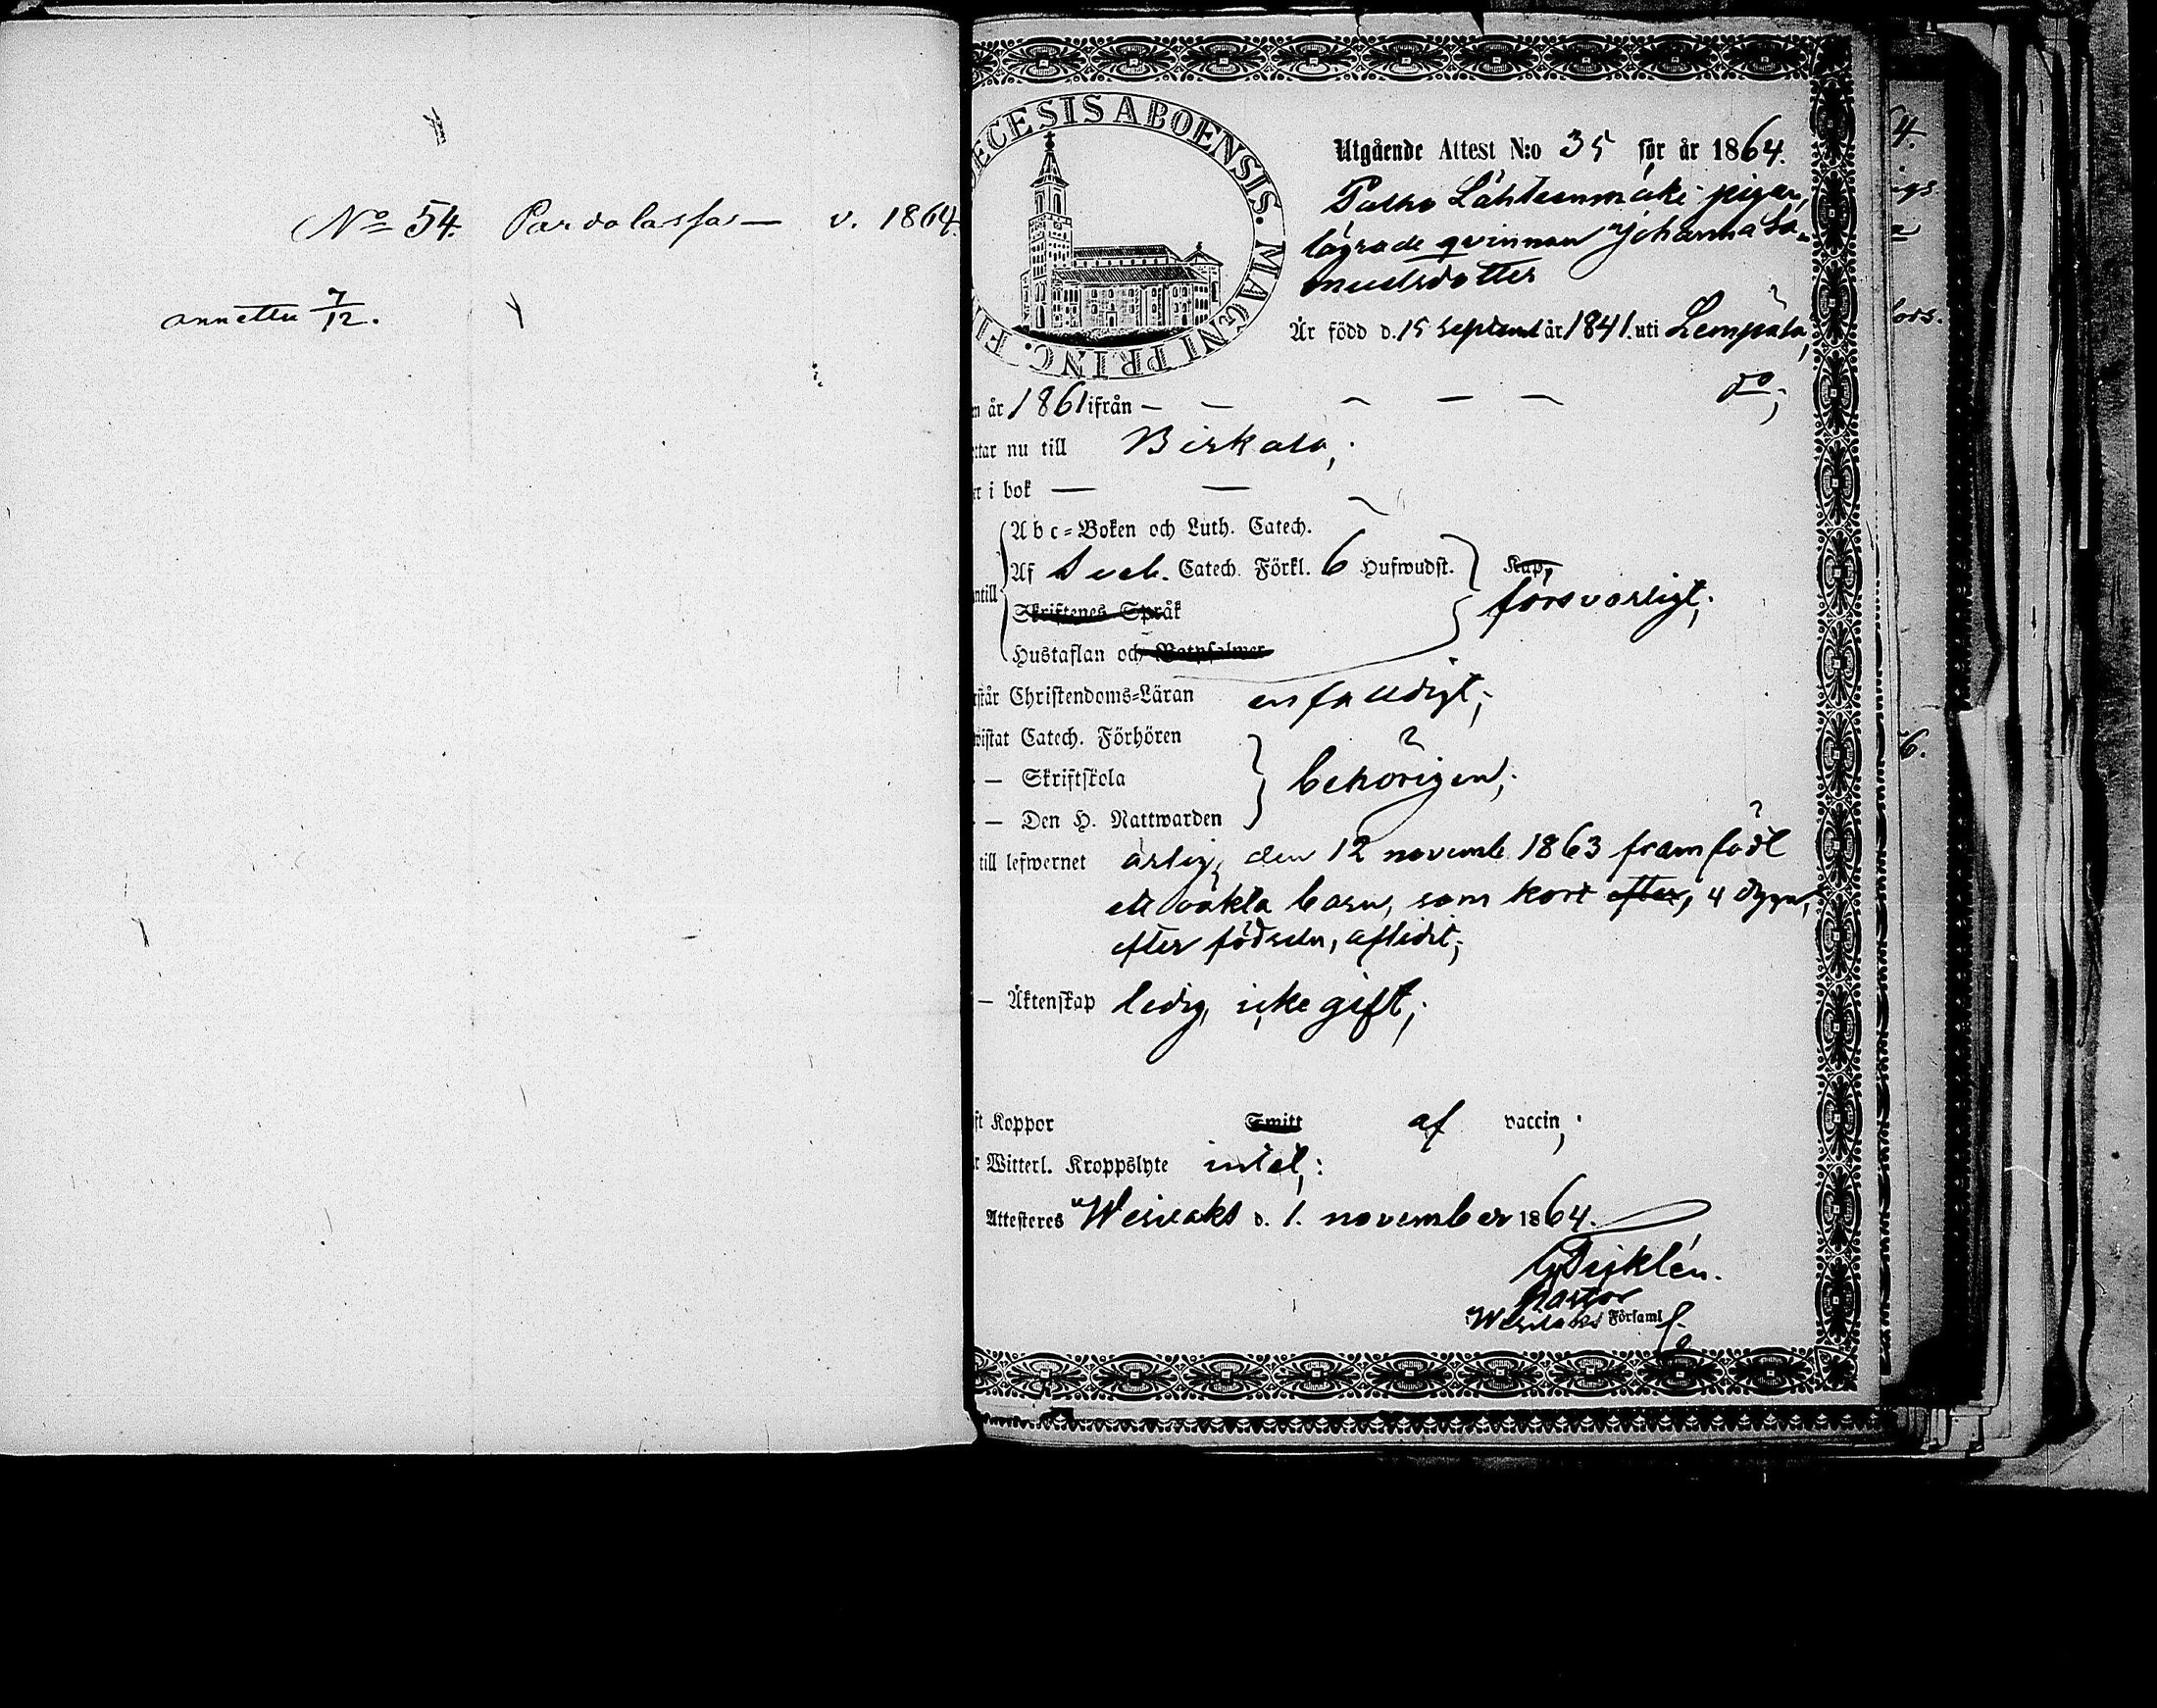 No 54. Pardalassa v. 1864.
annettu 7/12.
DŒCESIS ABOENSIS. MAGNI PRINC. FI
Utgående Attest N:o 35 för år 1864.
Lähteenmäki pigan,
lägrade qvinnan Johanna Sa-
muelsdotter
Är född d. 15 Septemb år 1841. uti Lempäla,
n år 1861 ifrån — — — — — do;
ttar nu till Birkala;
r i bok — — —
Abc=Boken och Luth. Catech.
Af Sveb. Catech. Förkl. 6 Hufwudst. Kap.
ntill
Skriftenes Språk
försvarligt;
Hustaflan och Botpsalmer
rstår Christendoms=Läran enfalldigt;
wistat Catech. Förhören
— Skriftskola
behörigen;
— Den H. Nattwarden
till lefwernet ärlig, den 12 novemb 1863 framfödt
ett oäkta barn, som kort efter, 4 dygn,
efter födseln, aflidit;
— Äktenskap ledig, icke gift;
ft Koppor Smitt af vaccin;
r Witterl. Kroppslyte intet;
Attesteres Wesilaks d. 1. november 1864.
Pastor
Wesilaks Församl
4.
igs
ors.
6.